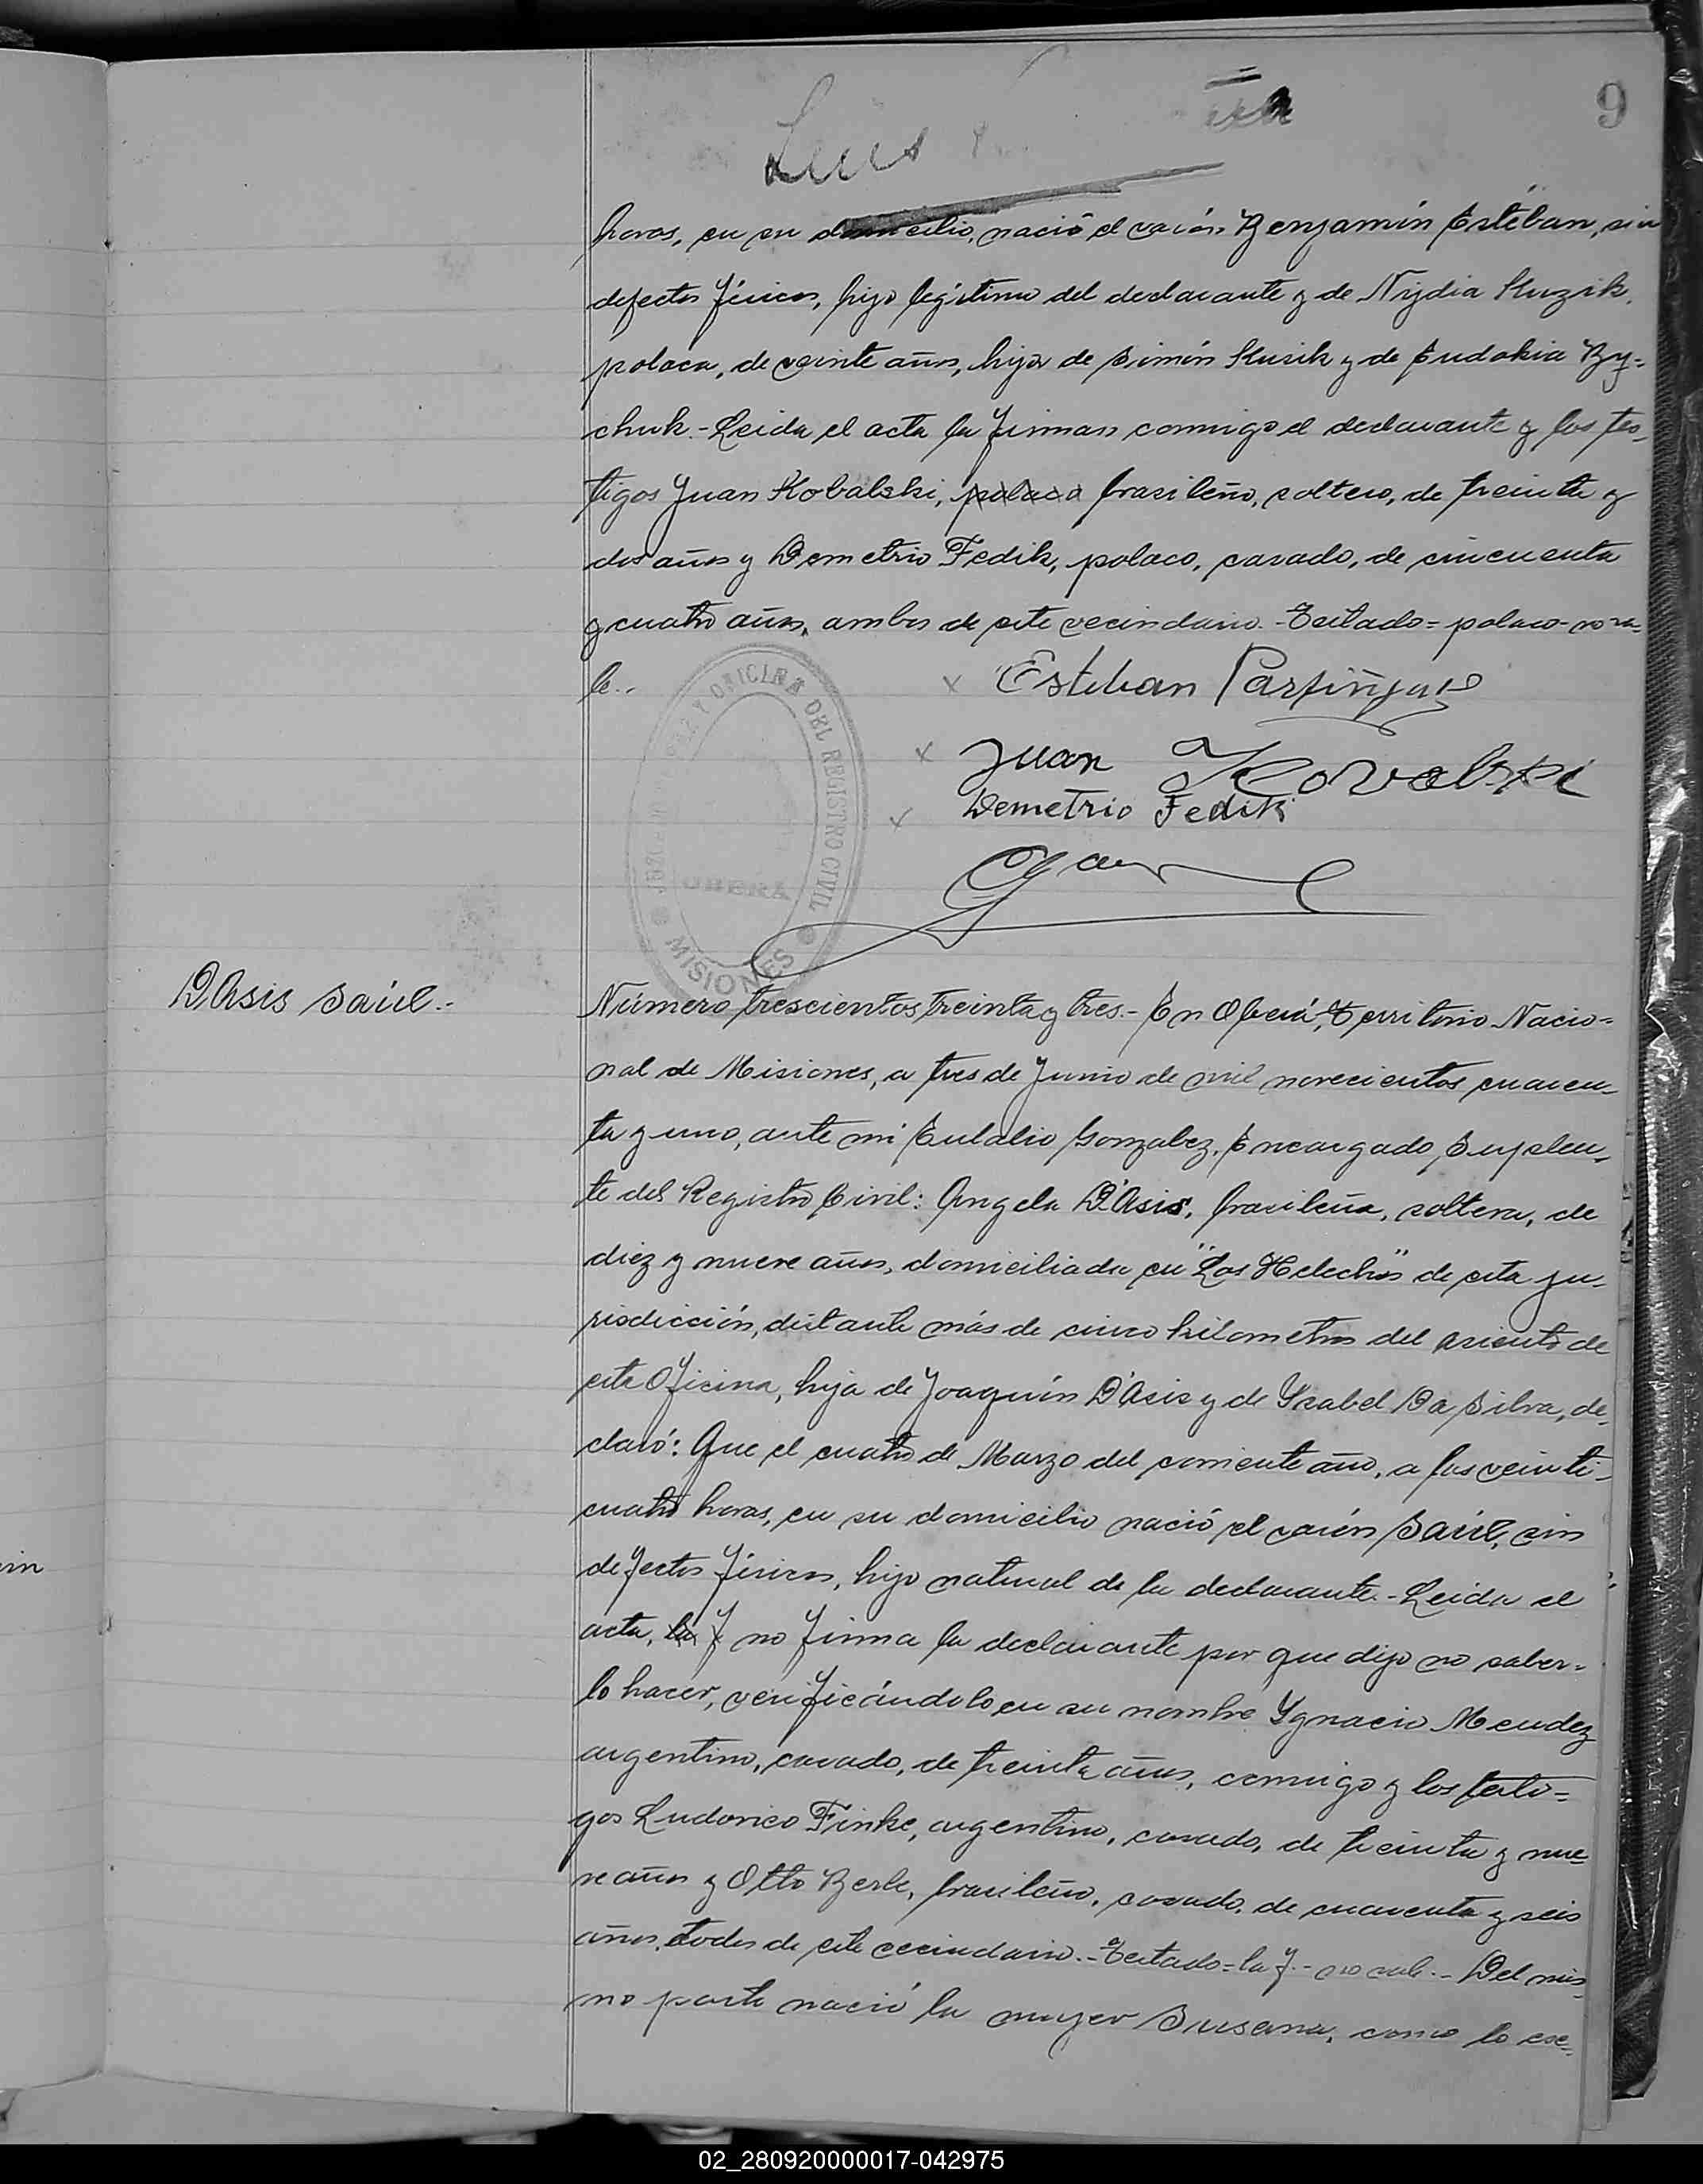 9
Luis
horas, en su domicilio, nació el varón Benjamín Estéban, sin
defectos físicos, hijo legítimo del declarante y de Nydia Kuzik,
polaca, de veinte años, hija de Simón Kusik y de Eudokia By-
chuk.- Leida el acta la firman conmigo el declarante y los tes-
tigos Juan Kobalski, polaco brasileño, soltero, de treinta y
dos años y Demetrio Fedik, polaco, casado, de cincuenta
y cuatro años, ambos de este vecindario.- Testado= polaco- no va-
le.-
x Esteban Parfiñuk
x Juan Kovalski
x Demetrio Fedik
JUZGADO DE PAZ Y OFICINA DEL REGISTRO CIVIL
OBERÁ
MISIONES
D'Asis Saúl.-
Número trescientos treinta y tres.- En Oberá, Territorio Nacio-
nal de Misiones, a tres de Junio de mil novecientos cuaren-
ta y uno, ante mi Eulalio Gonzalez, Encargado Suplen-
te del Registro Civil: Angela D'Asis, brasileña, soltera, de
diez y nueve años, domiciliada en "Los Helechos" de esta ju-
risdicción, distante más de cinco kilometros del asiento de
esta Oficina, hija de Joaquín D'Asis y de Ysabel Da Silva, de-
claró: Que el cuatro de Marzo del corriente año, a las veinti-
cuatro horas, en su domicilio nació el varón Saúl, sin
defectos físicos, hijo natural de la declarante.- Leida el
acta, la f no firma la declarante por que dijo no saber-
lo hacer, verificándolo en su nombre Ygnacio Mendez
argentino, casado, de treinta años, conmigo y los testi-
gos Ludovico Finke, argentino, casado, de treinta y nue-
ve años y Otto Berle, brasileño, casado, de cuarenta y seis
años, todos de este vecindario.- Testado= la f.- no vale.- Del mis-
mo parto nació la mujer Susana, como lo ese-
02_280920000017-042975